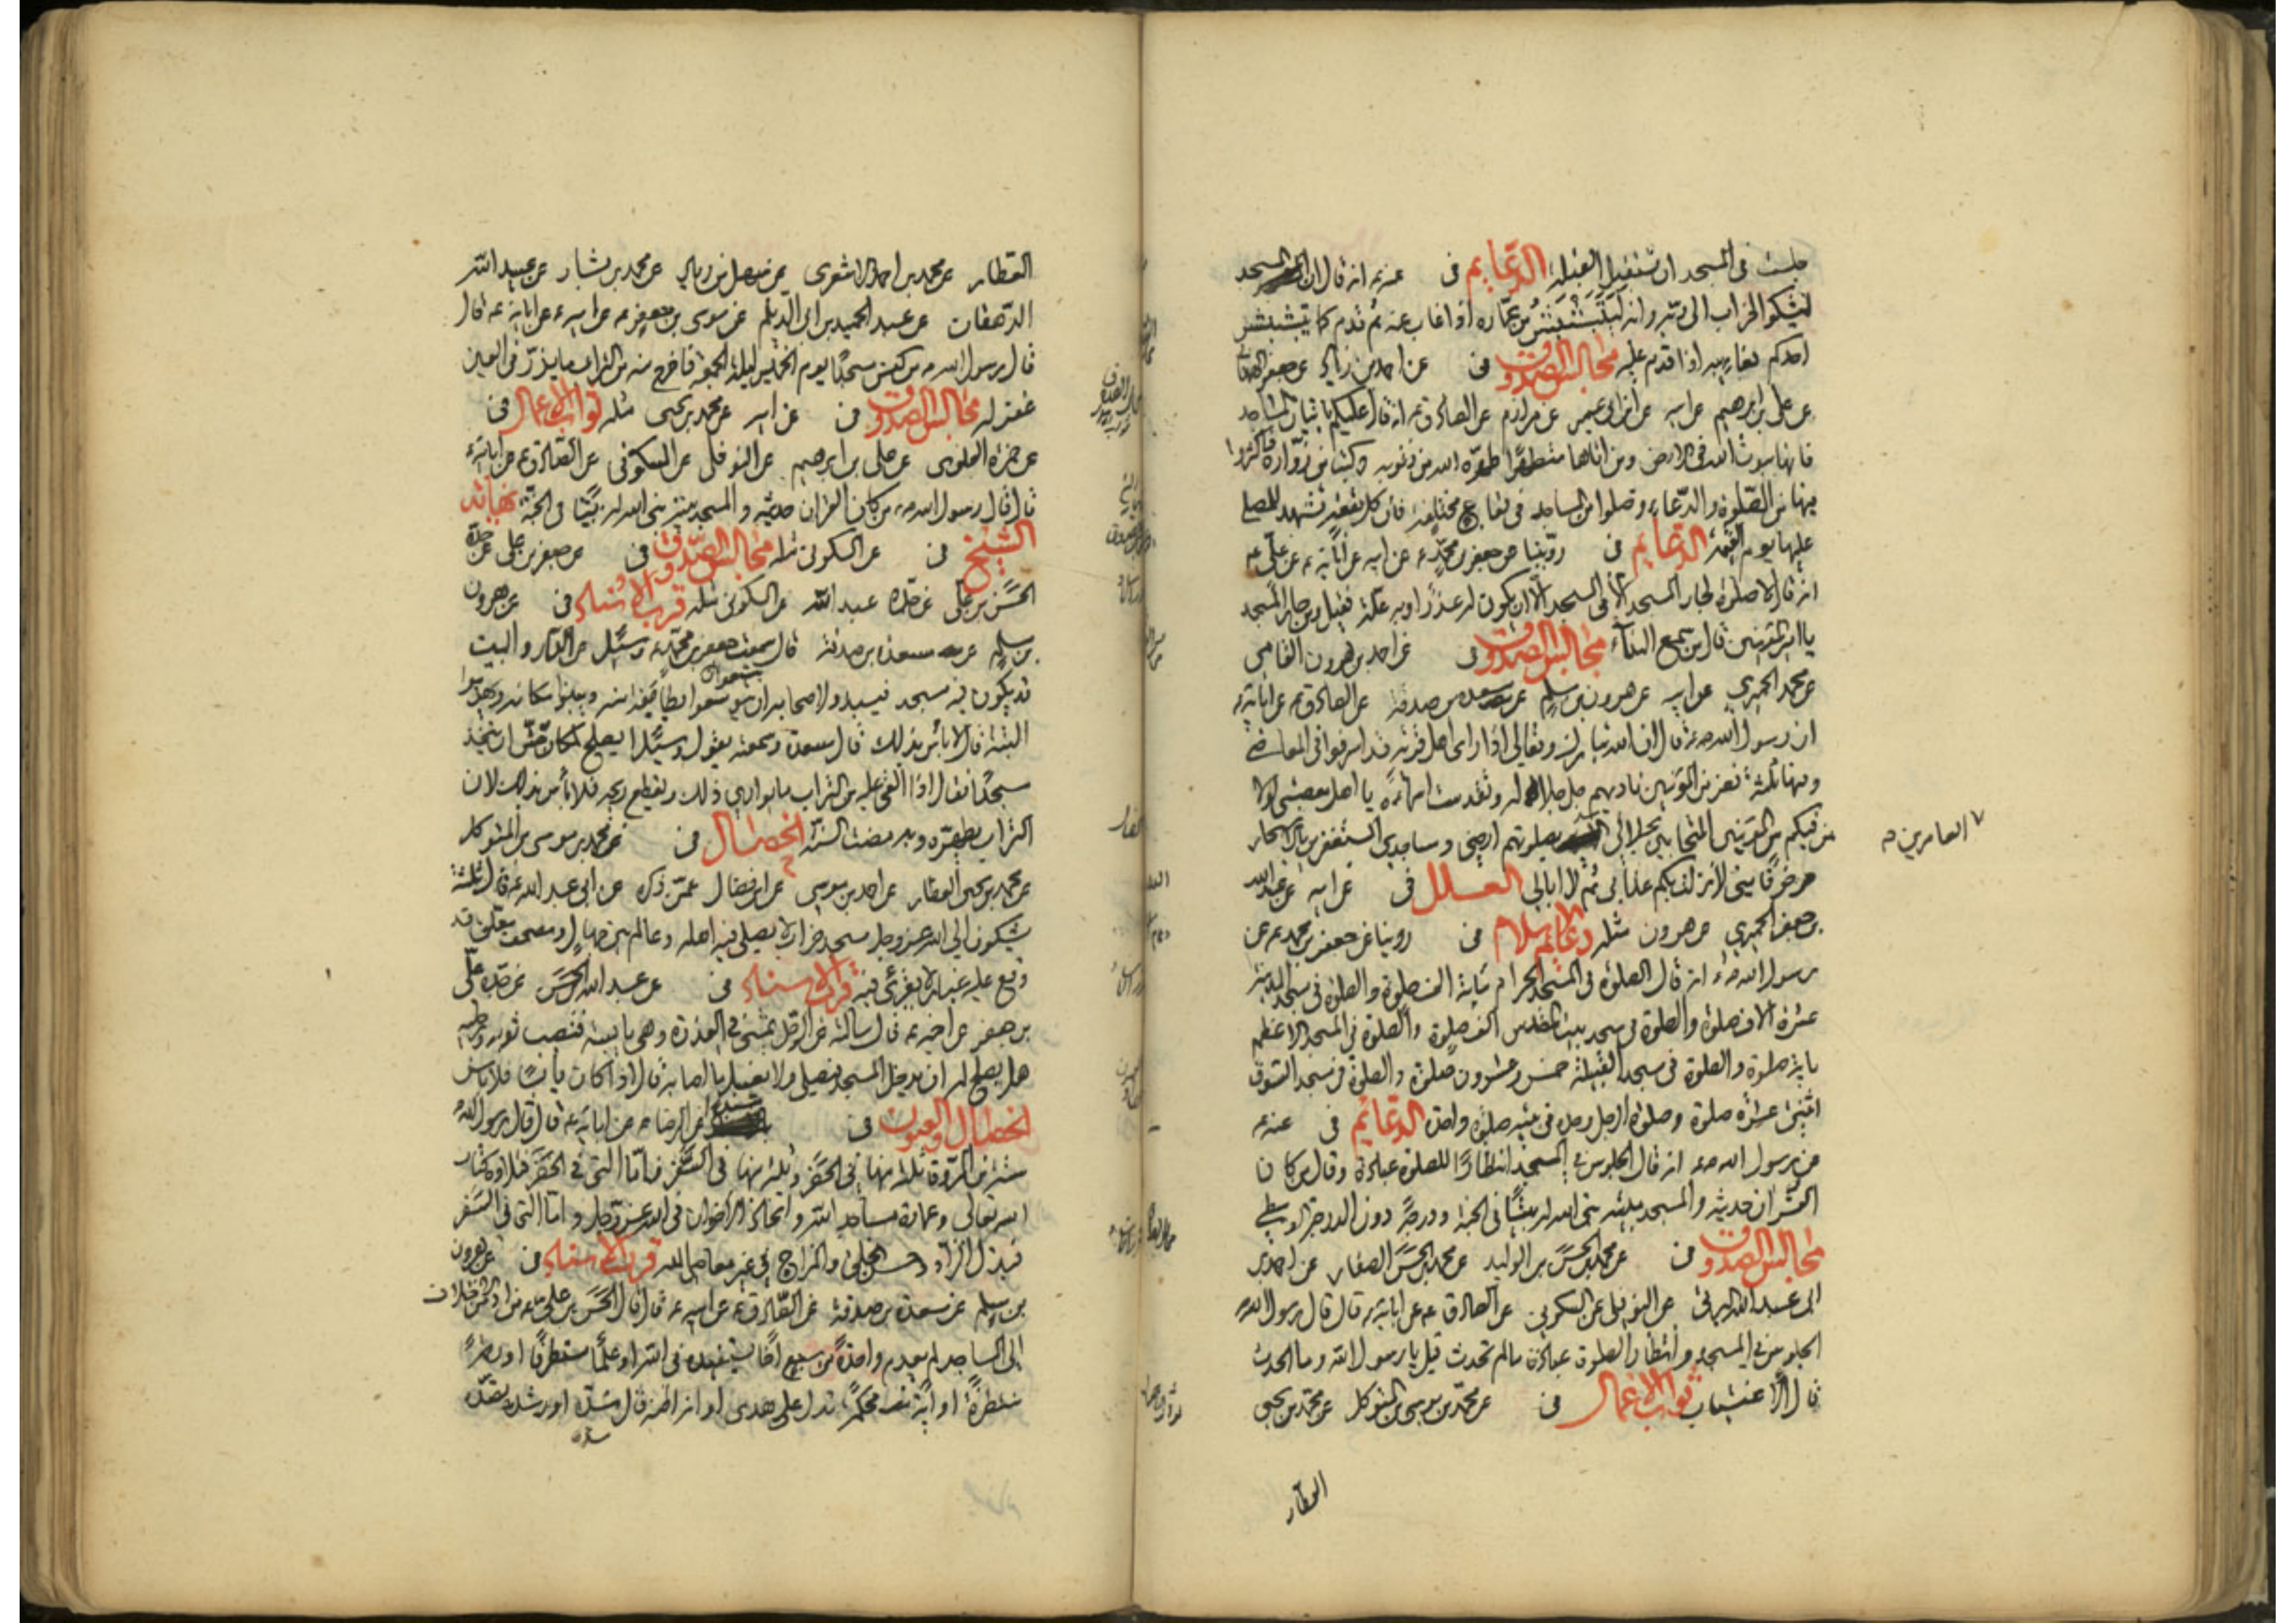 جلست فى المسجد ان تستقبل القبلة الدعايم فى عنه ع انه قال ان المسجد
ليشكو الخراب الى ربه وانه ليتبشبش من عماره اذا غاب عنه ثم قدم كما يتبشبش
احدكم بغايبه اذا قدم عليه مجالس الصدوق فى عن احمد بن زياد عن جعفر
عن على بن ابرهيم عن ابيه عن ابن ابى عمير عن مرازم عن الصادق ع انه قال عليكم باتيان المساجد
فانها بيوت الله فى الارض ومن اتاها متطهرا طهره الله من ذنوبه وكتب من زواره فاكثروا
فيها من الصلوة والدعاء وصلوا من المساجد فى بقاع مختلفة فان كل بقعة تشهد للمصلى
عليها يوم القيمة الدعايم فى روينا عن جعفر بن محمد ع عن ابيه عن آبائه ع عن على ع
انه قال لا صلوة لجار المسجد الا فى المسجد الا ان يكون له عذر او به علة فقيل ومن جار المسجد
يا امير المؤمنين قال من سمع النداء مجالس الصدوق فى عن احمد بن هرون الفامى
عن محمد الحميرى عن ابيه عن هرون بن مسلم عن مسعدة بن صدقة عن الصادق ع عن آبائه ع
ان رسول الله ص قال ان الله تبارك وتعالى اذا راى اهل قرية قد اسرفوا فى المعاصى
وفيها ثلثة نفر من المؤمنين ناديهم جل جلاله وتقدست اسماؤه يا اهل معصيتى لولا
من فيكم من المؤمنين المتحابين بجلالى العامرين بصلوتهم ارضى ومساجدى المستغفرين بالاسحار
خوفا منى لانزلت بكم عذابى ثم لا ابالى العلل فى عن ابيه عن عبد الله
بن جعفر الحميرى عن هرون مثله دعايم الاسلام فى روينا عن جعفر بن محمد ع عن
رسول الله ص انه قال الصلوة فى المسجد الحرام مائة الف صلوة والصلوة فى مسجد المدينة
عشرة آلاف صلوة والصلوة فى مسجد بيت المقدس الف صلوة والصلوة فى المسجد الاعظم
مائة صلوة والصلوة فى مسجد القبيلة خمس وعشرون صلوة والصلوة فى مسجد السوق
اثنتى عشرة صلوة وصلوة الرجل وحده فى بيته صلوة واحدة الدعايم فى عنه ع
عن رسول الله ص انه قال الجلوس فى المسجد انتظارا للصلوة عبادة وقال من كان
القرآن حديثه والمسجد بيته بنى الله له بيتا فى الجنة ودرجة دون الدرجة الوسطى
مجالس الصدوق فى عن محمد بن الحسن بن الوليد عن محمد بن الحسن الصفار عن احمد بن
ابى عبد الله البرقى عن النوفلى عن السكونى عن الصادق ع عن آبائه ع قال قال رسول الله
الجلوس فى المسجد وانتظار الصلوة عبادة ما لم تحدث قيل يا رسول الله وما الحدث
قال الاغتياب ثواب الاعمال فى عن محمد بن موسى بن المتوكل عن محمد بن يحيى
العطار
العطار عن محمد بن احمد الاشعرى عن سهل بن زياد عن محمد بن بشار عن عبيد الله
الدهقان عن عبد الحميد بن ابى الديلم عن موسى بن جعفر ع عن ابيه ع عن آبائه ع قال
قال رسول الله ص من كنس مسجدا يوم الخميس ليلة الجمعة فاخرج منه من التراب ما يذر فى العين
غفر له مجالس الصدوق فى عن ابيه عن محمد بن يحيى مثله ثواب الاعمال فى
عن حمزة العلوى عن على بن ابرهيم عن النوفلى عن السكونى عن الصادق ع عن آبائه ع
قال قال رسول الله ص من كان القرآن حديثه والمسجد بيته بنى الله له بيتا فى الجنة نهاية
الشيخ فى عن السكونى مثله مجالس الصدوق فى عن جعفر بن على عن جده
الحسن بن على عن جده عبد الله عن السكونى مثله قرب الاسناد فى عن هرون
بن مسلم عن مسعدة بن صدقة قال سمعت جعفر بن محمد ع وسئل عن الدار والبيت
قد يكون فيه مسجد فيبدو لاصحابه ان يتوسعوا بطايفة منه ويبنوا مكانه ويهدموا
البنية قال لا باس بذلك قال مسعدة وسمعته يقول وسئل ايصلح مكان حش ان يتخذ
مسجدا فقال اذا القى عليه من التراب ما يوارى ذلك ويقطع ريحه فلا باس بذلك لان
التراب يطهره وبه مضت السنة الخصال فى عن محمد بن موسى بن المتوكل
عن محمد بن يحيى العطار عن احمد بن موسى عن ابن فضال عمن ذكره عن ابى عبد الله ع قال ثلثة
يشكون الى الله عز وجل مسجد خراب لا يصلى فيه اهله وعالم بين جهال ومصحف معلق قد
وقع عليه غبار لا يقرئ فيه قرب الاسناد فى عن عبد الله بن الحسن عن جده على
بن جعفر عن اخيه ع قال سالته عن الرجل يمشى فى العذرة وهى يابسة فتصيب ثوبه ورجليه
هل يصلح له ان يدخل المسجد فيصلى ولا يغسل ما اصابه قال اذا كان يابسا فلا باس
الخصال والعيون فى عن الرضا ع عن آبائه ع قال قال رسول الله
ستة من المروة ثلثة منها فى الحضر وثلثة منها فى السفر فاما التى فى الحضر فتلاوة كتاب
الله تعالى وعمارة مساجد الله واتخاذ الاخوان فى الله عز وجل واما التى فى السفر
فبذل الزاد وحسن الخلق والمزاح فى غير معاصى الله قرب الاسناد فى عن هرون
بن مسلم عن مسعدة بن صدقة عن الصادق ع عن ابيه ع قال قال الحسن بن على ع من ادمن الاختلاف
الى المساجد لم يعدم واحدة من سبع اخا يستفيده فى الله او علما مستطرفا او رحمة
منتظرة او آية محكمة تدل على هدى او اراه قال سدة او رشدة تصده